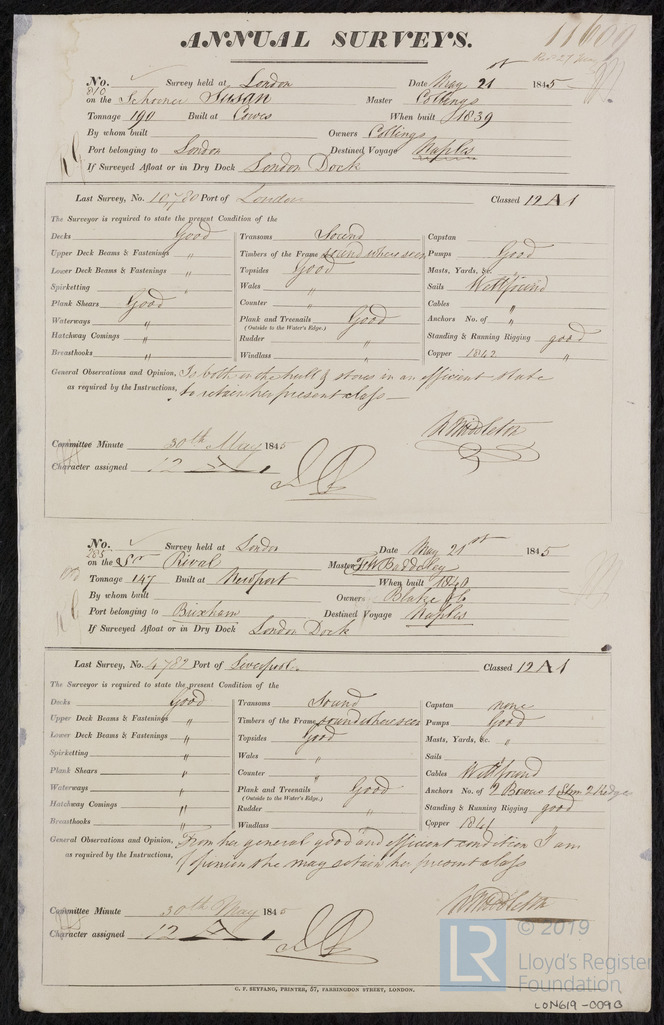 11609
ANNUAL SURVEYS.
No. 810 Survey held at London Date May 21st 1845
on the Schooner Susan Master Collings
Tonnage 190 Built at Cowes When built 1839
By whom built Owners Collings
Port belonging to London Destined Voyage Naples
If Surveyed Afloat or in Dry Dock London Dock
Last Survey, No. 10,780 Port of London Classed 12 A 1
The Surveyor is required to state the present Condition of the
Decks Good Transoms Sound Capstan
Upper Deck Beams & Fastenings " Timbers of the Frame sound where seen Pumps Good
Lower Deck Beams & Fastenings " Topsides Good Masts, Yards, &c. "
Spirketting " Wales " Sails Well found
Plank Shears Good Counter " Cables "
Waterways " Plank and Treenails Good Anchors No. of "
(Outside to the Water's Edge.)
Hatchway Comings " Rudder " Standing & Running Rigging good
Breasthooks " Windlass " Copper 1842 "
General Observations and Opinion, Is both in the hull & stores in an efficient state
as required by the Instructions, to retain her present class
W Middleton
Committee Minute 30th May 1845
Character assigned 12 A 1
No. 285 Survey held at London Date May 21st 1845
on the Sr Rival Master Baddeley
Tonnage 147 Built at Newport When built 1840
By whom built Owners Blake & Co
Port belonging to Brixham Destined Voyage Naples
If Surveyed Afloat or in Dry Dock London Dock
Last Survey, No. 4782 Port of Liverpool Classed 12 A 1
The Surveyor is required to state the present Condition of the
Decks Good Transoms Sound Capstan none
Upper Deck Beams & Fastenings " Timbers of the Frame sound where seen Pumps Good
Lower Deck Beams & Fastenings " Topsides Good Masts, Yards, &c. "
Spirketting " Wales " Sails
Plank Shears " Counter " Cables Well found
Waterways " Plank and Treenails Good Anchors No. of 2 Bowers 1 Strm 2 Kedges
(Outside to the Water's Edge.)
Hatchway Comings " Rudder " Standing & Running Rigging good
Breasthooks " Windlass " Copper 1841
General Observations and Opinion, From her general good and efficient condition I am
as required by the Instructions, Opinion she may retain her present class
W Middleton
Committee Minute 30th May 1845
Character assigned 12 A 1
C. F. SEYFANG, PRINTER, 57, FARRINGDON STREET, LONDON.
© 2019
LR Lloyd's Register
Foundation
LON619-0090